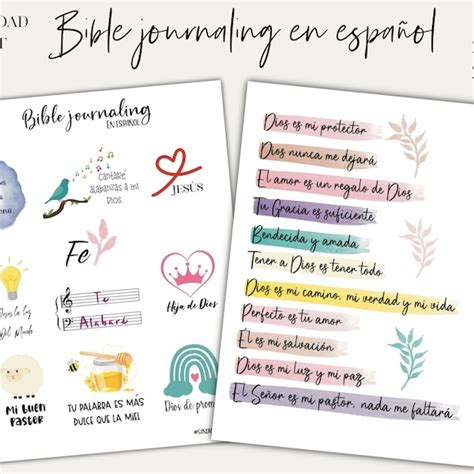 DAD
Bible journaling en español
Bible journaling
EN ESPAÑOL
Cantaré
alabanzas a mi
Dios
JESÚS
Fe
Te
Alabaré
Hija de Dios
la luz
Del Mundo
Mi buen
Pastor
TU PALABRA ES MÁS
DULCE QUE LA MIEL
Dios de prom
Dios es mi protector
Dios nunca me dejará
El amor es un regalo de Dios
Tu Gracia es suficiente
Bendecida y amada
Tener a Dios es tener todo
Dios es mi camino, mi verdad y mi vida
Perfecto es tu amor
Él es mi salvación
Dios es mi luz y mi paz
El Señor es mi pastor, nada me faltará